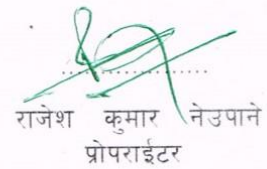 राजेश कुमार नेउपाने
प्रोपराईटर